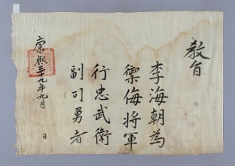 教旨
李海朝為
禦侮將軍
行忠武衛
副司勇者
康熙三十九年九月 日